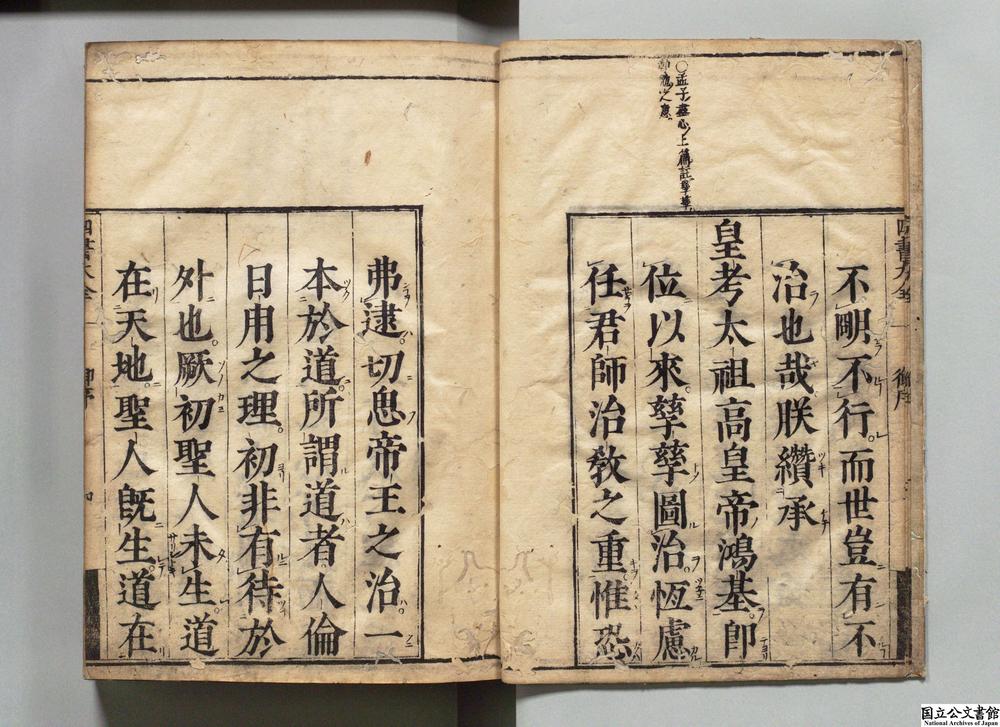 ○孟子盡心上篇註孳孳
不明不行而世豈有不
治也哉朕纘承
皇考太祖高皇帝鴻基即
位以來孳孳圖治恆慮
任君師治教之重惟恐
弗逮切思帝王之治一
本於道所謂道者人倫
日用之理初非有待於
外也厥初聖人未生道
在天地聖人旣生道在
四書大全
御序
国立公文書館
National Archives of Japan